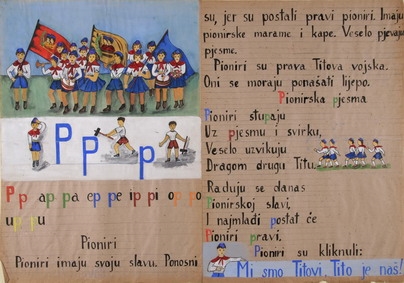 P P p
P p ap pa ep pe ip pi op po
up pu
Pioniri
Pioniri imaju svoju slavu. Ponosni
su, jer su postali pravi pioniri. Imaju
pionirske marame i kape. Veselo pjevaju
pjesme.
Pioniri su prava Titova vojska.
Oni se moraju ponašati lijepo.
Pionirska pjesma
Pioniri stupaju
Uz pjesmu i svirku,
Veselo uzvikuju
Dragom drugu Titu.
Raduju se danas
Pionirskoj slavi,
I najmlađi postat će
Pioniri pravi.
Pioniri su kliknuli:
Mi smo Titovi, Tito je naš!